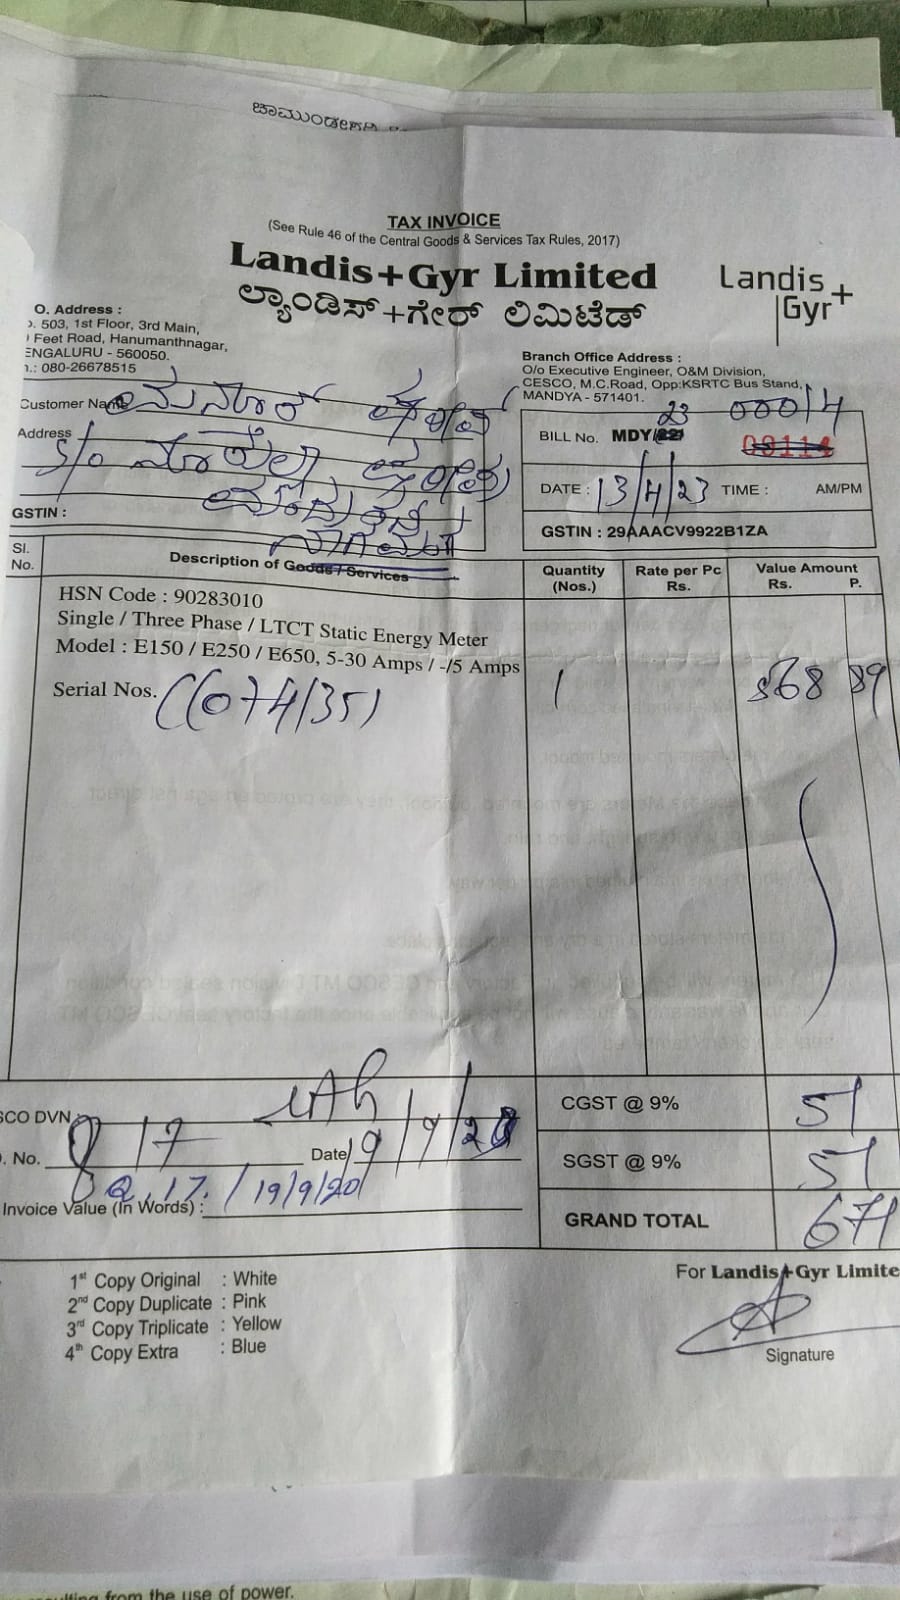 TAX INVOICE
(See Rule 46 of the Central Goods & Services Tax Rules, 2017)
Landis+Gyr Limited
ಲ್ಯಾಂಡಿಸ್+ಗೇರ್ ಲಿಮಿಟೆಡ್
Landis+
Gyr
O. Address :
503, 1st Floor, 3rd Main,
Feet Road, Hanumanthnagar,
ENGALURU - 560050.
080-26678515
Branch Office Address :
O/o Executive Engineer, O&M Division,
CESCO, M.C.Road, Opp:KSRTC Bus Stand,
MANDYA - 571401.
Customer Name
Address S/o
GSTIN :
BILL No. MDY/22/ 23 00014
00114
DATE : 13/4/23 TIME : AM/PM
GSTIN : 29AAACV9922B1ZA
Sl. No. Description of Goods / Services Quantity (Nos.) Rate per Pc Rs. Value Amount Rs. P.
HSN Code : 90283010
Single / Three Phase / LTCT Static Energy Meter
Model : E150 / E250 / E650, 5-30 Amps / -/5 Amps
Serial Nos. 1 568 89
SCO DVN
. No. Date
19/9/20
Invoice Value (In Words) :
CGST @ 9% 51
SGST @ 9% 51
GRAND TOTAL 671
1st Copy Original : White
2nd Copy Duplicate : Pink
3rd Copy Triplicate : Yellow
4th Copy Extra : Blue
For Landis+Gyr Limite
Signature
from the use of power.